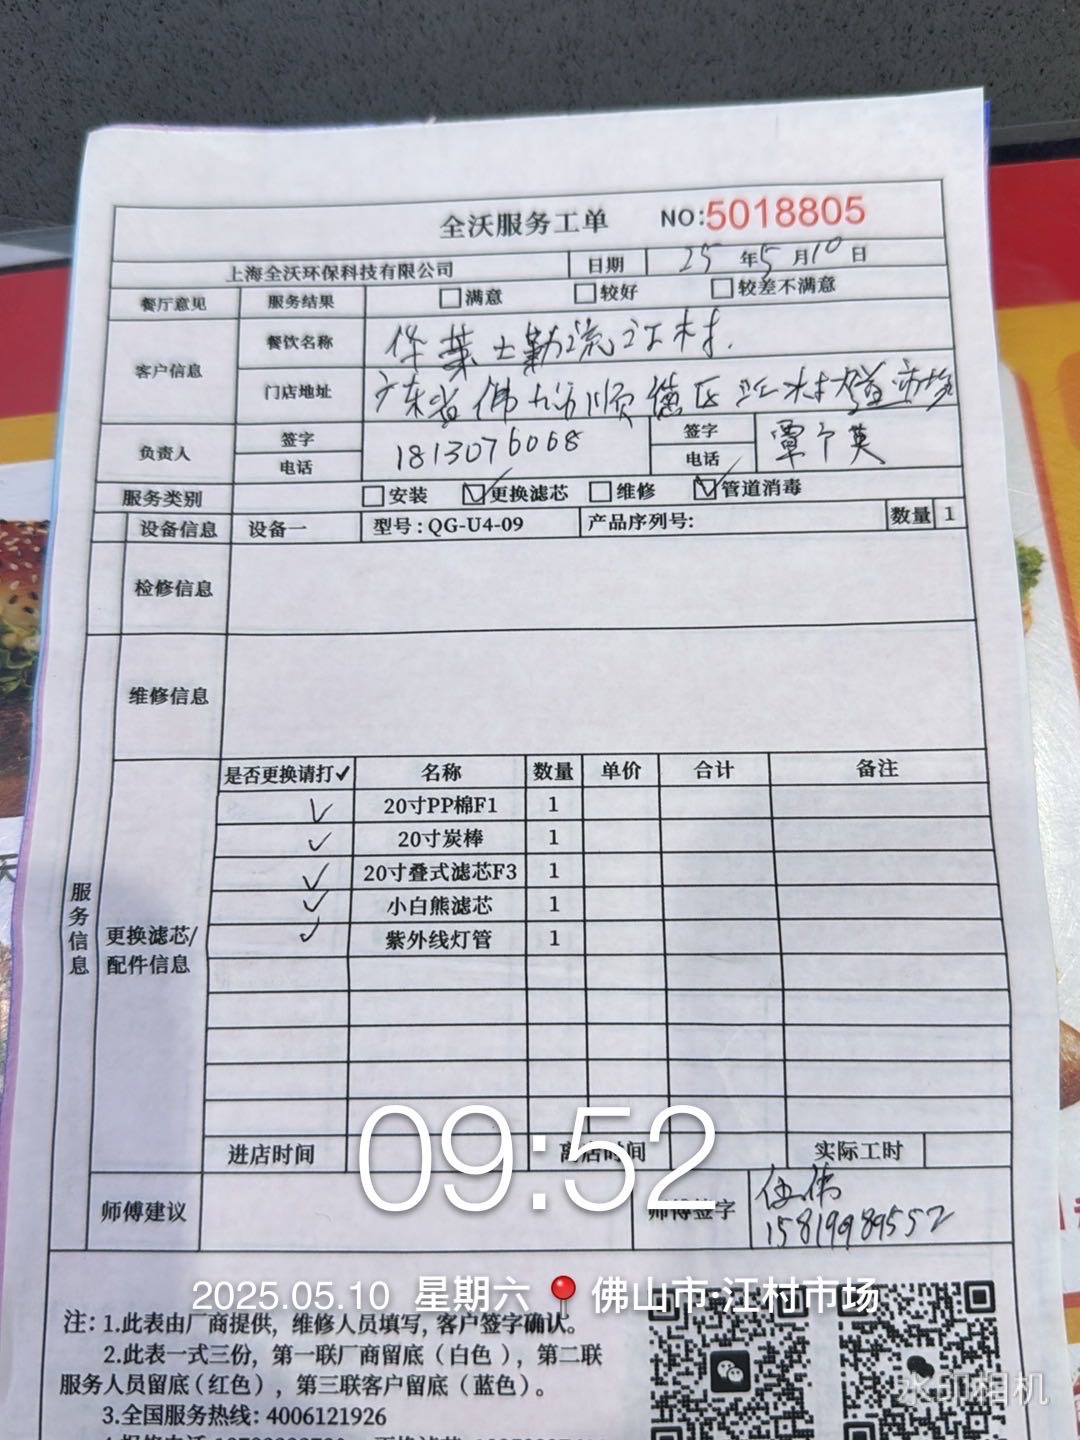 全沃服务工单 NO:5018805
上海全沃环保科技有限公司 日期 25年5月10日
餐厅意见 服务结果 满意 较好 较差不满意
客户信息 餐饮名称 华莱士勒流江村.
门店地址 广东省佛山市顺德区江村市场
负责人 签字 电话 18130776068 签字 电话 覃英
服务类别 安装 更换滤芯 维修 管道消毒
设备信息 设备一 型号:QG-U4-09 产品序列号: 数量 1
检修信息
维修信息
服务信息
更换滤芯/配件信息
是否更换请打✓ 名称 数量 单价 合计 备注
✓ 20寸PP棉F1 1
✓ 20寸炭棒 1
✓ 20寸叠式滤芯F3 1
✓ 小白熊滤芯 1
✓ 紫外线灯管 1
进店时间 离店时间 实际工时
09:52
师傅建议 师傅签字 伍伟
15819989552
2025.05.10 星期六 佛山市·江村市场
注:1.此表由厂商提供,维修人员填写,客户签字确认。
2.此表一式三份,第一联厂商留底(白色),第二联
服务人员留底(红色),第三联客户留底(蓝色)。
3.全国服务热线:4006121926
水印相机